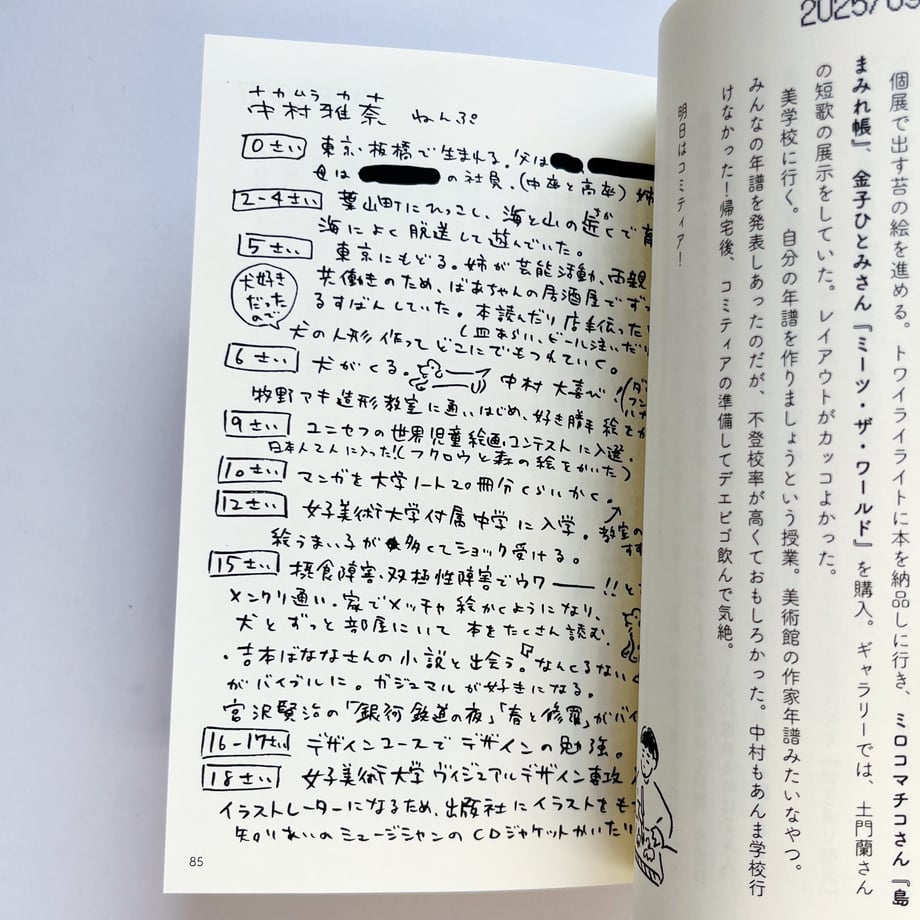 2025/09
個展で出す苔の絵を進める。トワイライライトに本を納品しに行き、ミロコマチコさん『島
まみれ帳』、金子ひとみさん『ミーツ・ザ・ワールド』を購入。ギャラリーでは、土門蘭さん
の短歌の展示をしていた。レイアウトがカッコよかった。
美学校に行く。自分の年譜を作りましょうという授業。美術館の作家年譜みたいなやつ。
みんなの年譜を発表しあったのだが、不登校率が高くておもしろかった。中村もあんま学校行
けなかった！帰宅後、コミティアの準備してデエビゴ飲んで気絶。
明日はコミティア！
ナカムラ カナ
中村雅奈 ねんぷ
0さい 東京・板橋で生まれる。父は
母は の社員。(中卒と高卒) 姉
2-4さい 葉山町にひっこし、海と山の近くで育
ちか
海によく脱走して遊んでいた。
5さい 東京にもどる。姉が芸能活動、両親
共働きのため、ばあちゃんの居酒屋でずっ
るすばんしていた。本読んだり店手伝った
(皿あらい、ビール注いだり
犬の人形作ってどこにでもつれていく。
犬好き
だった
ので
6さい 犬がくる。 中村 大喜び!
牧野アキ造形教室に通いはじめ、好き勝手絵をか
9さい ユニセフの世界児童絵画コンテストに入選。
日本人で入った!(フクロウと森の絵をかいた)
10さい マンガを大学ノート20冊分くらいかく。
12さい 女子美術大学付属中学に入学。教室の
絵うまい子が多くてショック受ける。
15さい 摂食障害、双極性障害でウワー!!と
メンクリ通い。家でメッチャ絵かくようになり、
犬とずっと部屋にいて本をたくさん読む。
・吉本ばななさんの小説と出会う。『なんくるない
がバイブルに。ガジュマルが好きになる。
宮沢賢治の「銀河鉄道の夜」「春と修羅」がバイ
16-17さい デザインコースでデザインの勉強。
18さい 女子美術大学ヴィジュアルデザイン専攻
イラストレーターになるため、出版社にイラストをも
知りあいのミュージシャンのCDジャケットかいたり
85